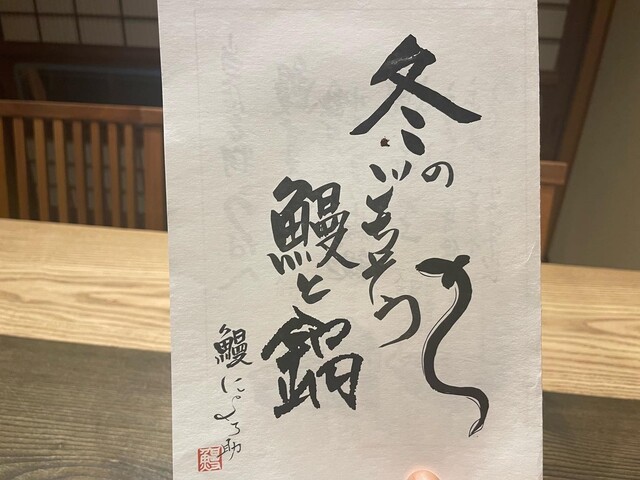 冬の
ごちそう
鰻と鍋
鰻にょろ助
鰻